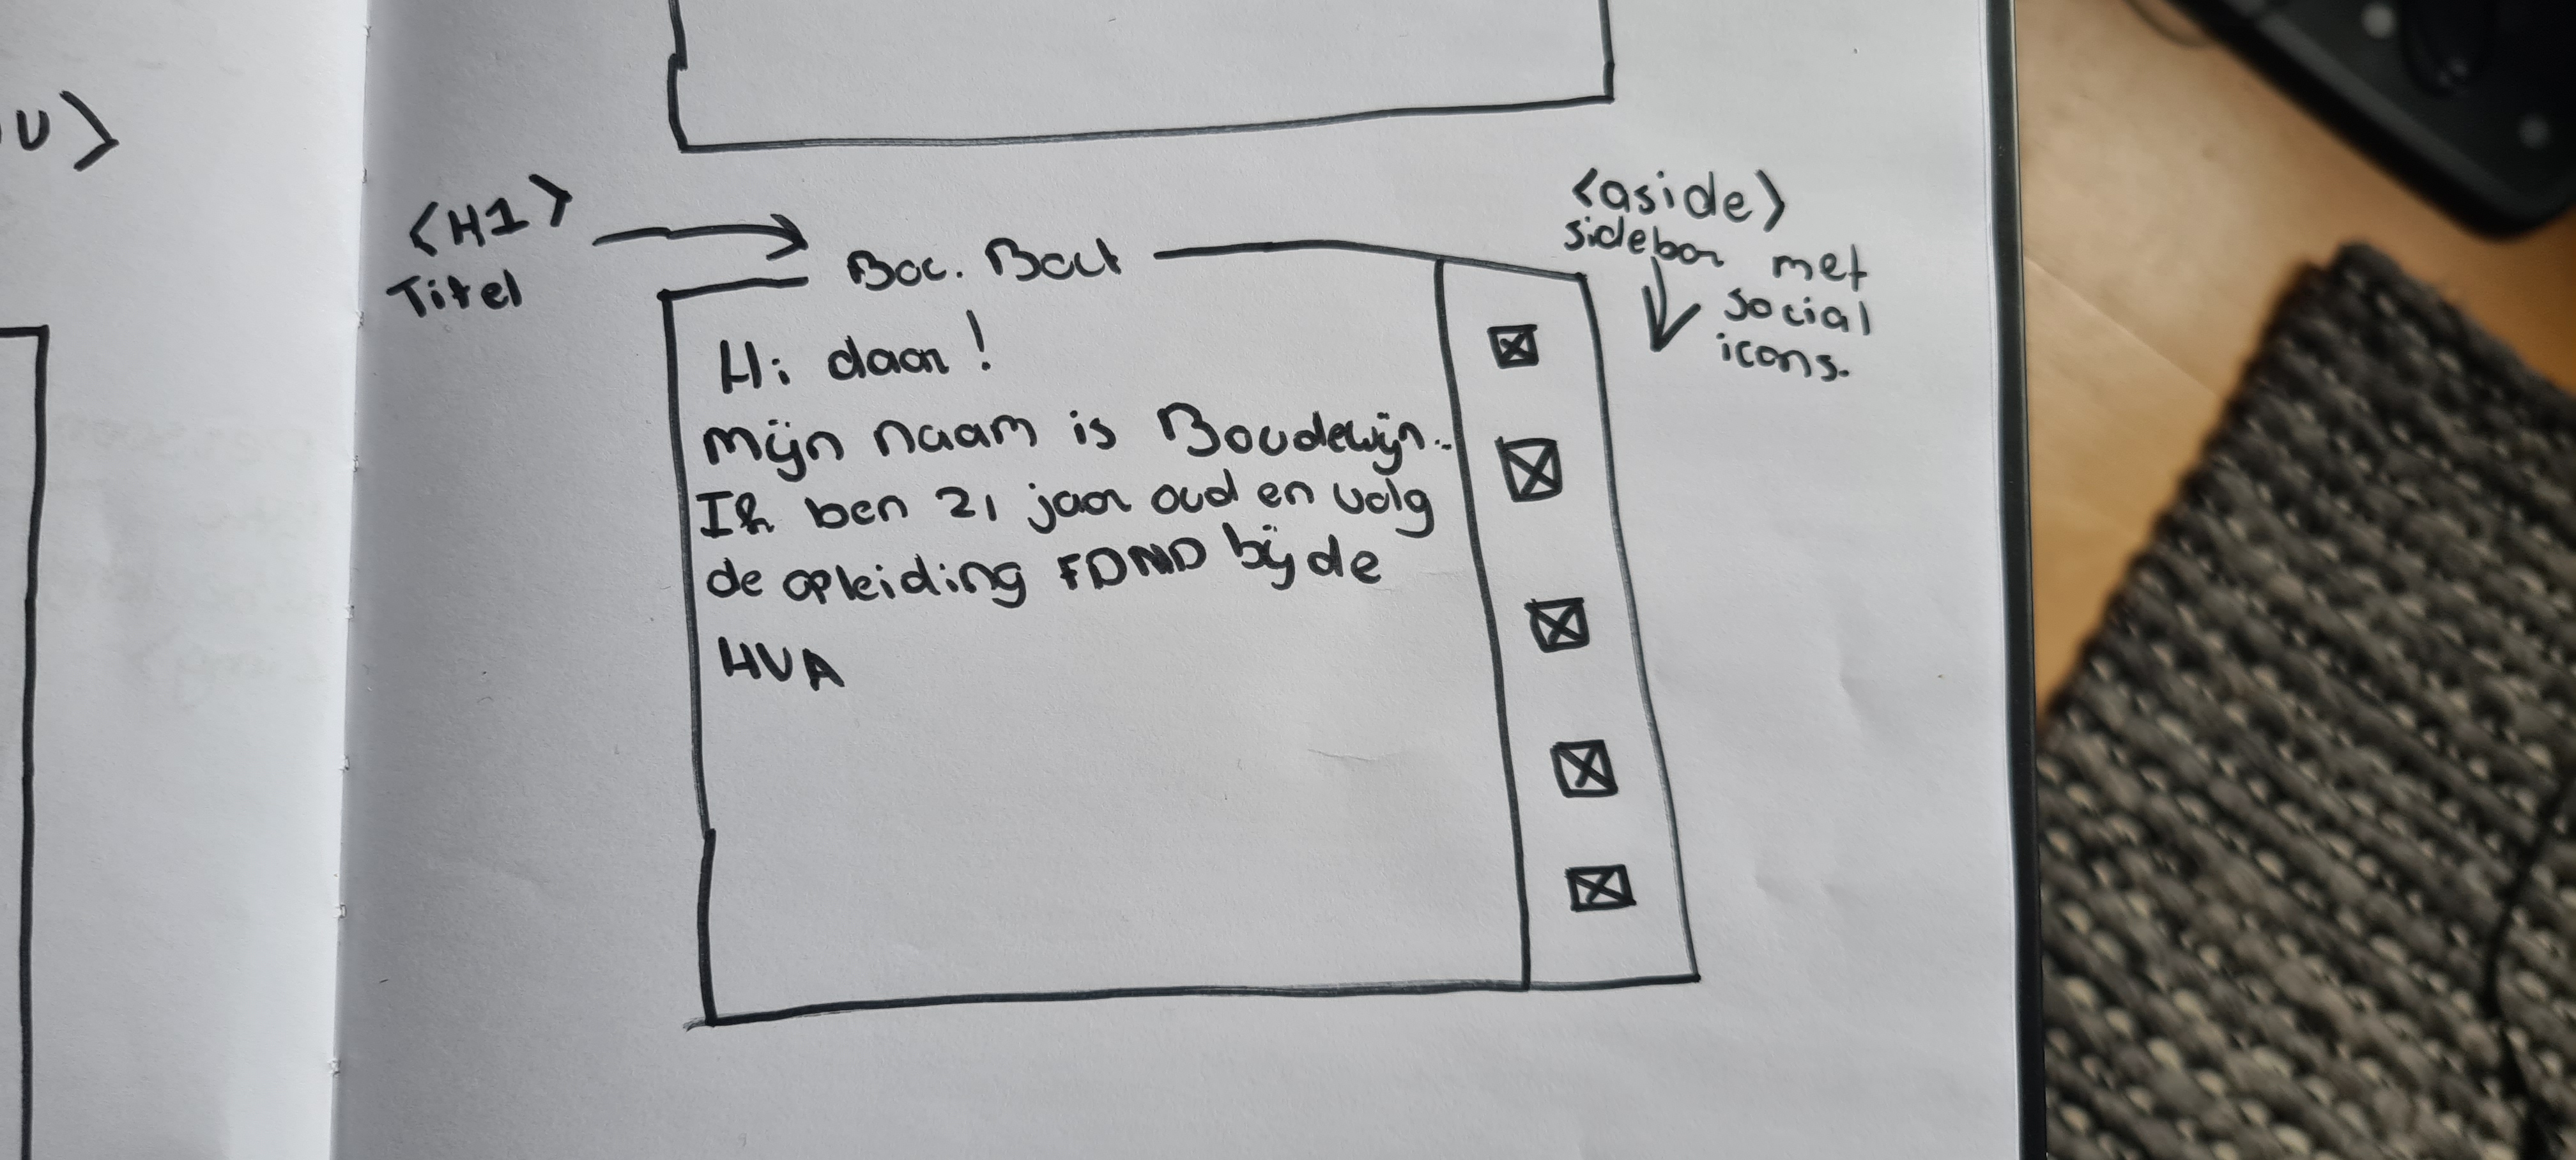 U>
<H1>
Titel
Bou. Bout
Hi daar!
Mijn naam is Boudewijn..
Ik ben 21 jaar oud en volg
de opleiding FDND bij de
HVA
<aside>
sidebar met
social
icons.